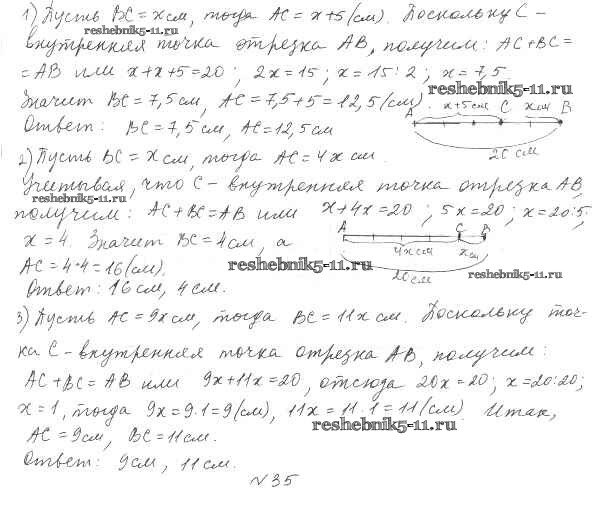 1) Пусть BC = x см, тогда AC = x+5 (см). Поскольку C –
reshebnik5-11.ru
внутренняя точка отрезка AB, получим: AC+BC=
=AB или x+x+5=20; 2x=15; x=15:2; x=7,5.
reshebnik5-11.ru
Значит BC=7,5 см, AC=7,5+5=12,5 (см).
A x+5см C x см B
Ответ: BC=7,5 см, AC=12,5 см
20 см
2) Пусть BC = x см, тогда AC = 4x см.
Учитывая, что C – внутренняя точка отрезка AB,
reshebnik5-11.ru
получим: AC+BC=AB или x+4x=20; 5x=20; x=20:5;
x=4. Значит BC=4см, а
A C B
4x см x см
AC=4·4=16(см).
reshebnik5-11.ru
20 см
reshebnik5-11.ru
Ответ: 16 см, 4 см.
3) Пусть AC=9x см, тогда BC=11x см. Поскольку точ-
ка C – внутренняя точка отрезка AB, получим:
AC+BC=AB или 9x+11x=20, отсюда 20x=20; x=20:20;
x=1, тогда 9x=9·1=9(см), 11x=11·1=11(см). Итак,
AC=9см, BC=11см.
reshebnik5-11.ru
Ответ: 9см, 11см.
№35